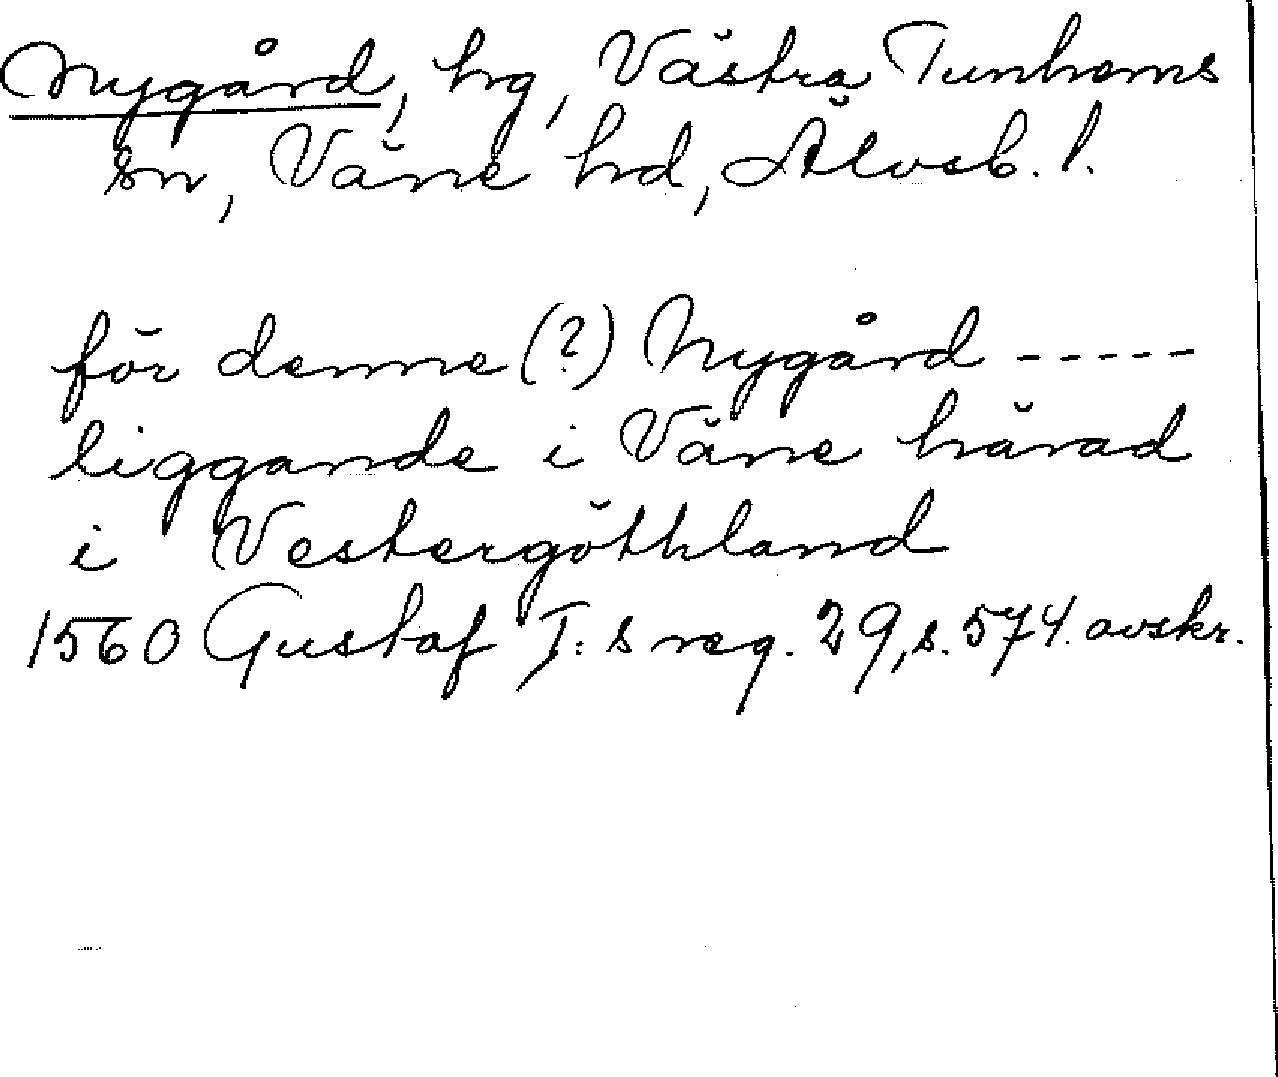 Nygård, hg, Västra Tunhems
sn, Väne hd, Älvsb. l.
för denne (?) Nygård -----
liggande i Väne härad
i Vestergöthland
1560 Gustaf I:s reg. 29, s. 574. avskr.